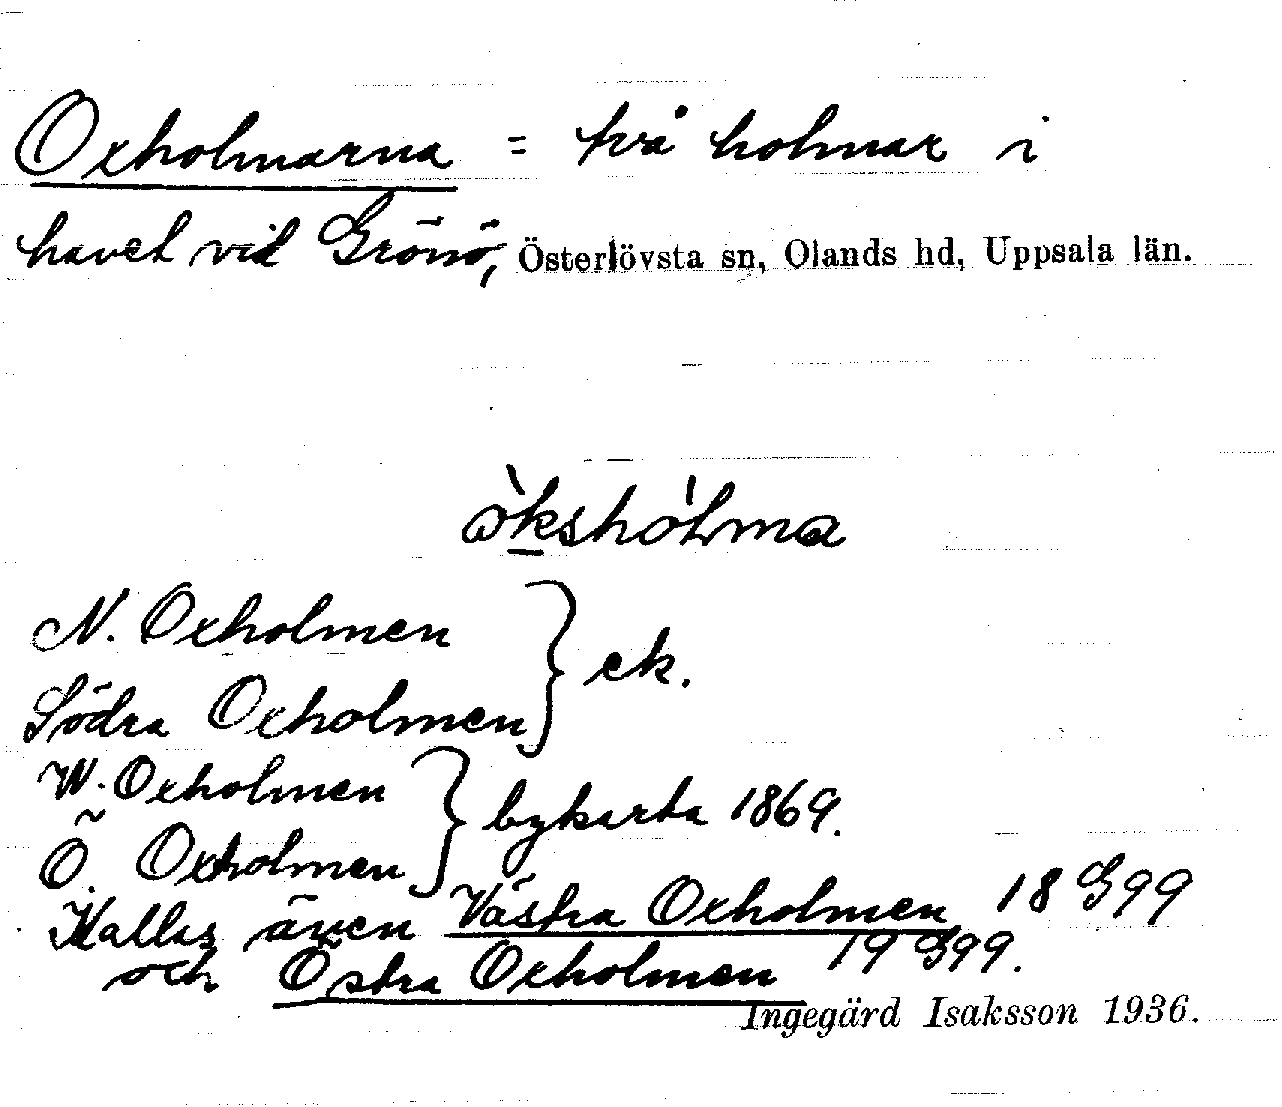 Oxholmarna = två holmar i
havet vid Grönö, Österlövsta sn, Olands hd, Uppsala län.
öksholma
N. Oxholmen
Södra Oxholmen } ek.
W. Oxholmen
Ö. Oxholmen } bykarta 1869.
Kallas även Västra Oxholmen 18 G99
och Östra Oxholmen 19 G99.
Ingegärd Isaksson 1936.